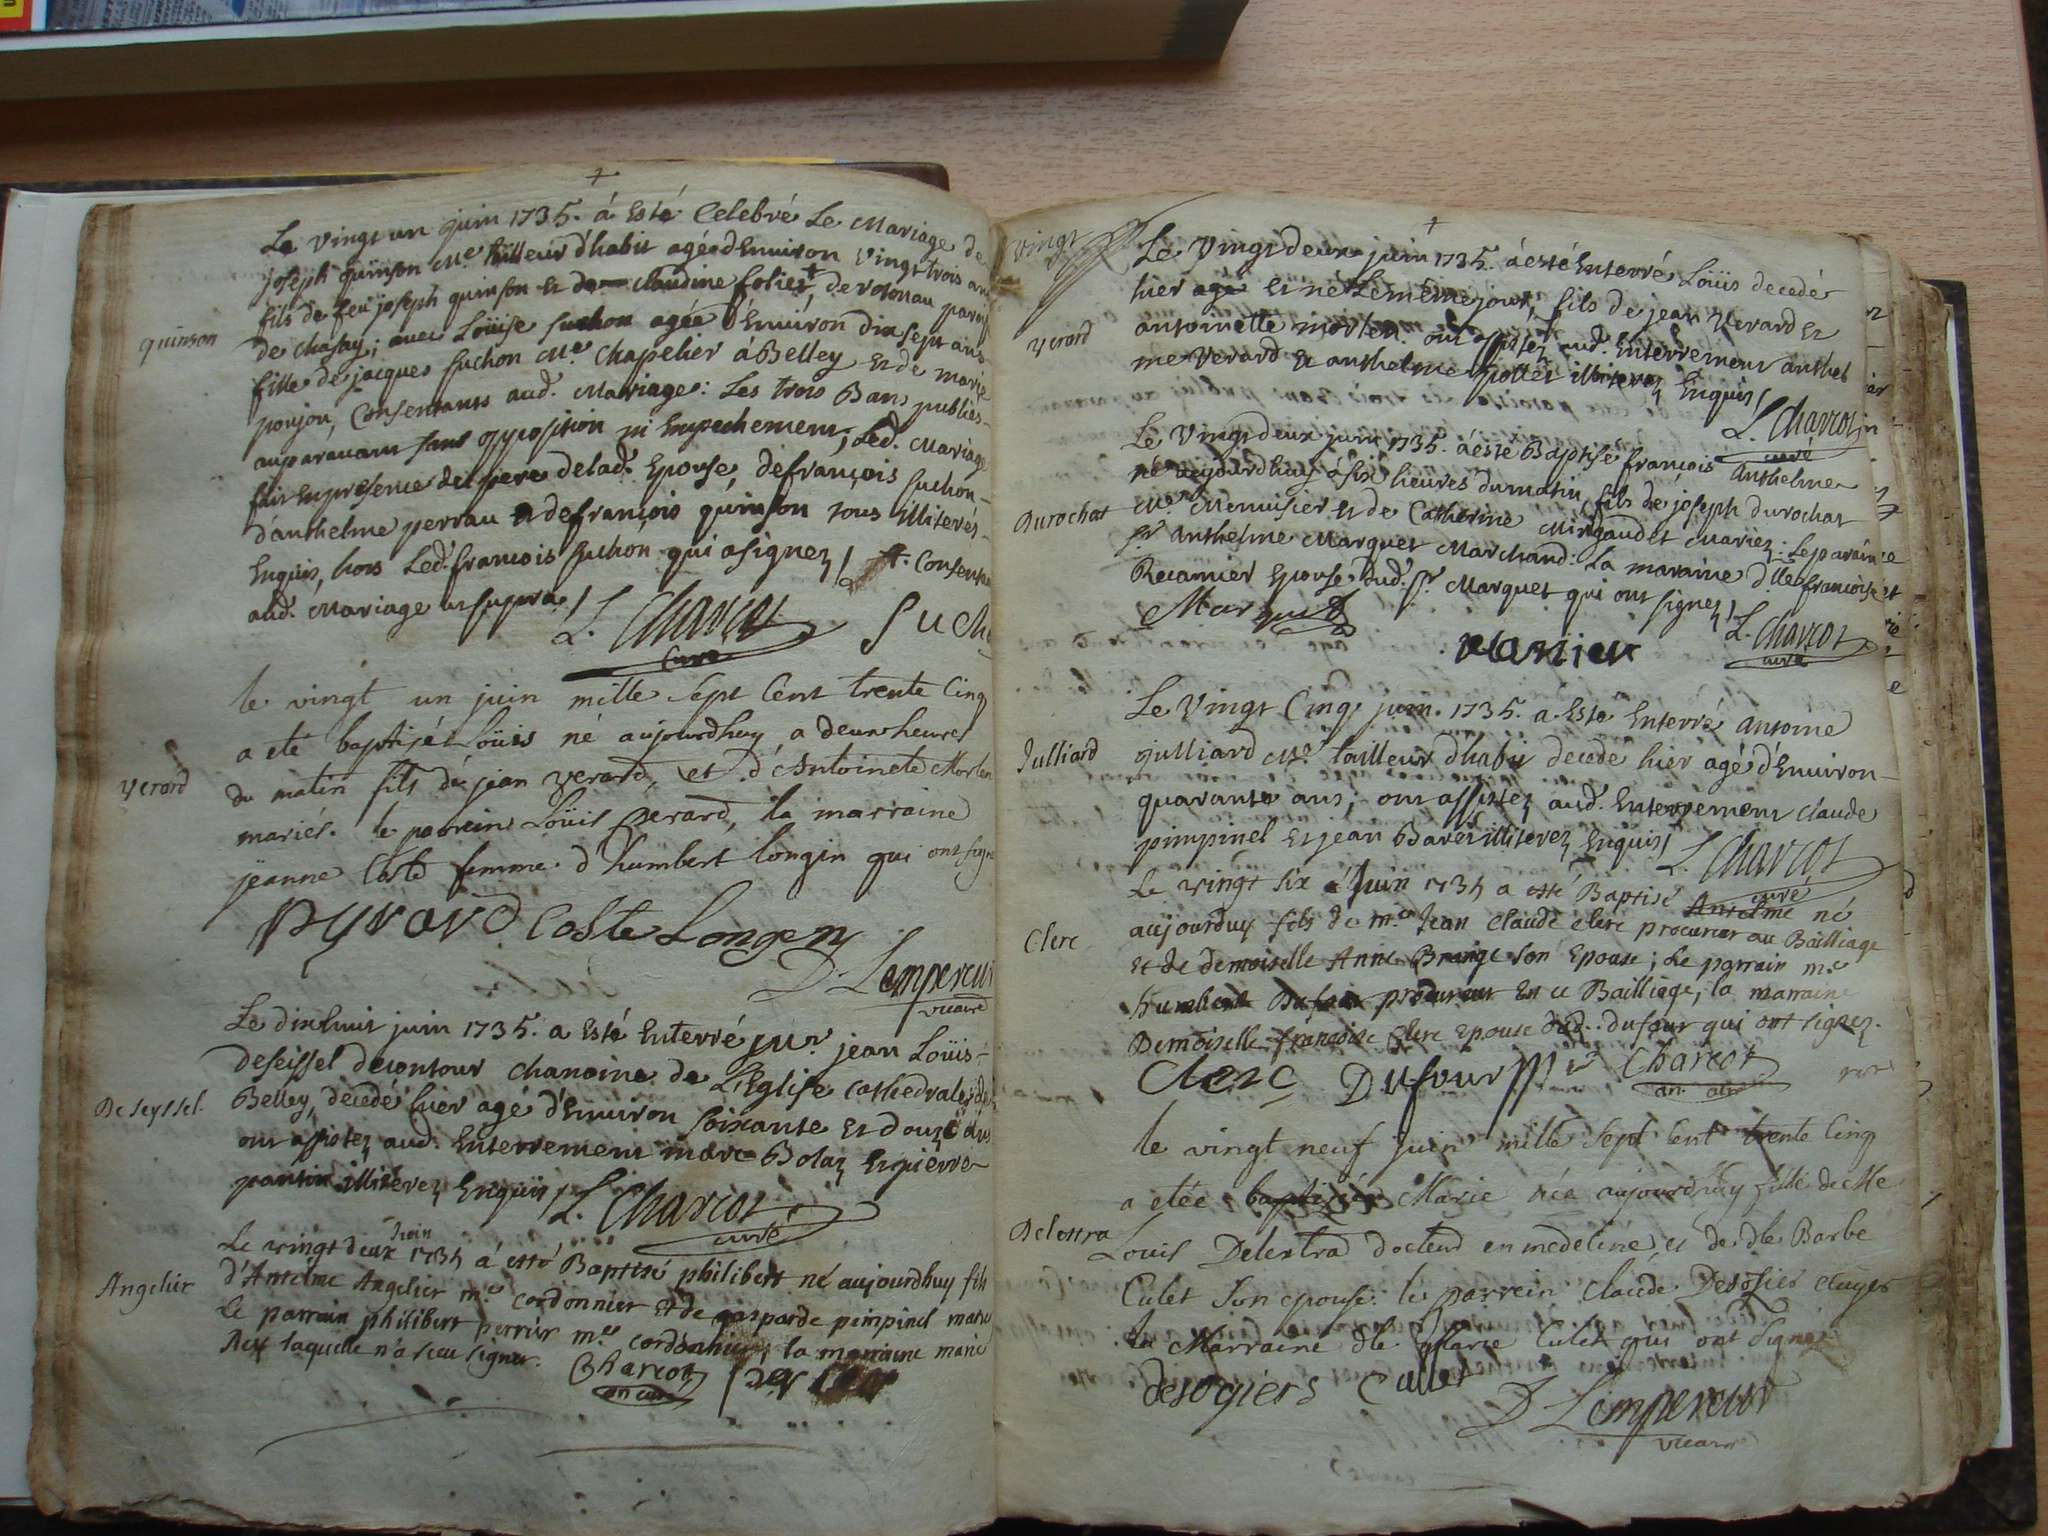 Le vingt un juin 1735. á Esté Celebré Le Mariage de
joseph quinson Me. tailleur d'habit agé d'Environ vingt trois ans
fils de feu joseph quinson et de claudine foliet + de rotonau paroisse
quinson
de chasay; avec Loüise suchon agée d'Environ dix sept ans
fille de jacques suchon Me. Chapelier á Belley et de marie
poujon, Consentants aud. Mariage: Les trois Bans publiés
auparavant sans opposition ni Empechement; Led. Mariage
fait En presence du pere de lad. Epouse, de françois suchon
d'anthelme perrau et de françois quinson tous illiterés
Enquis, hors Led. françois suchon qui a signez / + Consente
aud. Mariage ut supra /
L. Charcot Such
curé
le vingt un juin mille Sept Cent trente Cinq
a eté baptisé Loüis né aujourdhuy a deux heures
verard
du matin fils de jean verard, et d'Antoinete Morten
mariés. le parrein Loüis perard, la marraine
jeanne Coste femme d'humbert longin qui ont signé
pyrard Coste Longen
D. Lempereur
vicaire
Le dixhuit juin 1735. a Esté Enterré Mr. jean Loüis
deseissel de contour chanoine de L'Eglise cathedrale de
De seyssel.
Belley, decedé hier agé d'Environ soixante et douze ans
ont assistez aud. Enterrement marc Bolaz Et pierre
pantin illiterez Enquis / L. Charcot
curé
Juin
Le vingt deux 1735 á esté Baptisé philibert né aujourdhuy fils
Angelier
d'Antelme Angelier me. cordonnier et de gasparde pimpinel mariés
Le parrain philibert perrier me. cordonnier, la marraine marie
Rey laquelle n'a sceu signer.
Charcot
an. curé
vingt
Le vingt deux juin 1735. á esté Enterré Loüis decedé
hier agé et né le même jour, fils de jean verard et
verard
antoinette morten. ont assistez aud. Enterrement anthel
me verard et anthelme pollet illiterez Enquis /
L. Charcot
curé
Le vingt deux juin 1735. á esté Baptisé françois Anthelme
né aujourdhuy á six heures du matin, fils de joseph durochat
Durochat
Me. Menuisier et de Catherine Mingaudet Mariez: Le paraine
sr. anthelme Marquet Marchand: La maraine dlle françoise
Recamier Epouse dud. sr. Marquet qui ont signez /
Marquet
L. Charcot
curé
Le vingt Cinq juin. 1735. a Esté Enterré antoine
Julliard
julliard Me. tailleur d'habit decedé hier agé d'Environ
quarante ans; ont assistez aud. Enterrement claude
pimpinel et jean Bavet illiterez Enquis /
L. Charcot
curé
Le vingt six Juin 1735 a esté Baptisé Antelme né
Clerc
aujourduy fils de me. Jean Claude clerc procureur au Bailliage
et de demoiselle Anne Brange son Epouse; Le parrain me.
humbert Dufour procureur en ce Bailliage, la marraine
Demoiselle françoise Clerc epouse dud. dufour qui ont signez.
Clerc Dufour Charcot
an. curé
le vingt neuf juin mille Sept Cent trente Cinq
a etée baptisée Marie née aujourdhuy fille de Me
Delestra
Louis Delestra docteur en medecine, et de dle Barbe
Culet son epouse: le parrein Claude Desosier
la Marraine dle Marie Culet qui ont signez
desogiers Cullet
D Lempereur
vicaire